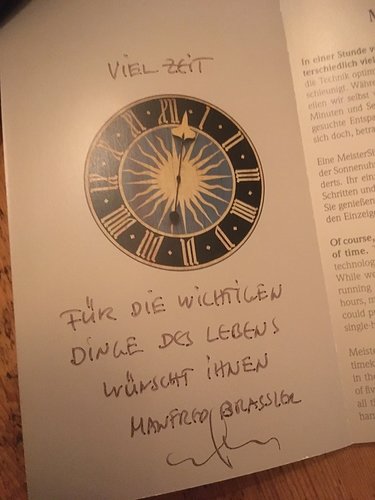 VIEL ZEIT
XII I II III IIII V VI VII VIII IX X XI
FÜR DIE WICHTIGEN
DINGE DES LEBENS
WÜNSCHT IHNEN
MANFRED BRASSLER
M
In einer Stunde v
terschiedlich viel
die Technik optim
schleunigt. Währe
ellen wir selbst
Minuten und Se
gesuchte Entspa
sich doch, betra
Eine MeisterSi
der Sonnenuh
derts. Ihr ein
Schritten und
Sie genießen
den Einzeige
Of course,
of time.
technolog
While we
running
hours, m
could p
single-h
Meiste
timek
in the
of five
all t
han